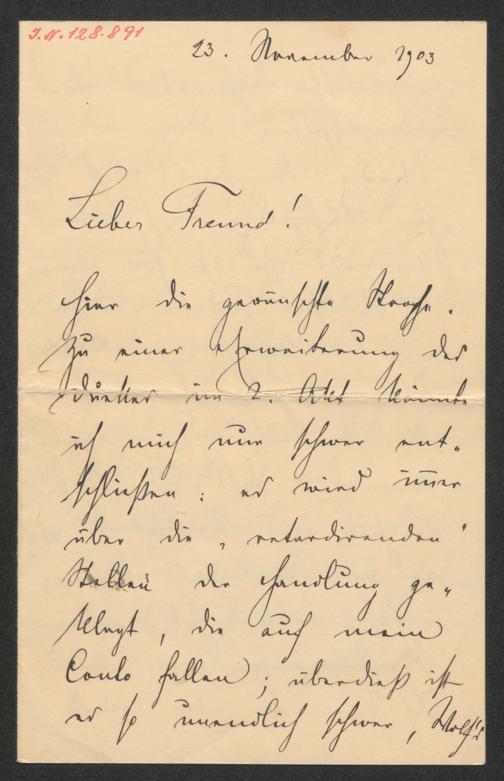 I.N. 128.891
23. November 1903
Lieber Freund!
Hier die gewünschte Strophe.
Zu einer Erweiterung des
Duettes im 2. Akt könnte
ich mich nur schwer ent-
schließen: es wird immer
über die „retardirenden"
Stellen der Handlung ge-
klagt, die auf mein
Conto fallen; überdieß ist
es so unendlich schwer, Wolf's